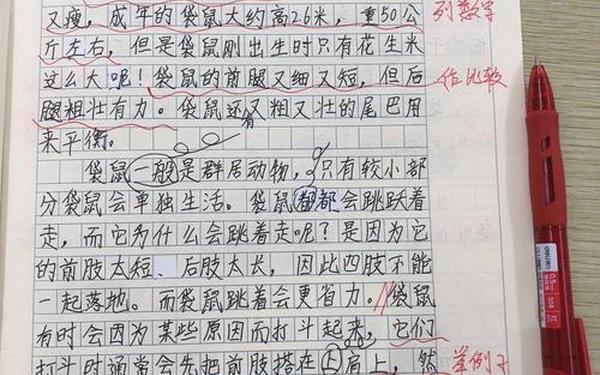 又瘦，成年的袋鼠大约高2.6米，重50公 列数字
斤左右，但是袋鼠刚出生时只有花生米
这么大呢！袋鼠的前腿又细又短，但后 作比较
腿粗壮有力。袋鼠还有又粗又壮的尾巴用
来平衡。
袋鼠一般是群居动物，只有较小部
分袋鼠会单独生活。袋鼠都都会跳跃着
走，而它为什么会跳着走呢？是因为它
的前肢太短、后肢太长，因此四肢不能
一起落地。而袋鼠跳着会更省力。袋鼠
有时会因为某些原因而打斗起来，它们
打斗时通常会先把前肢搭在上肩上，然 举例子
deli
0.5